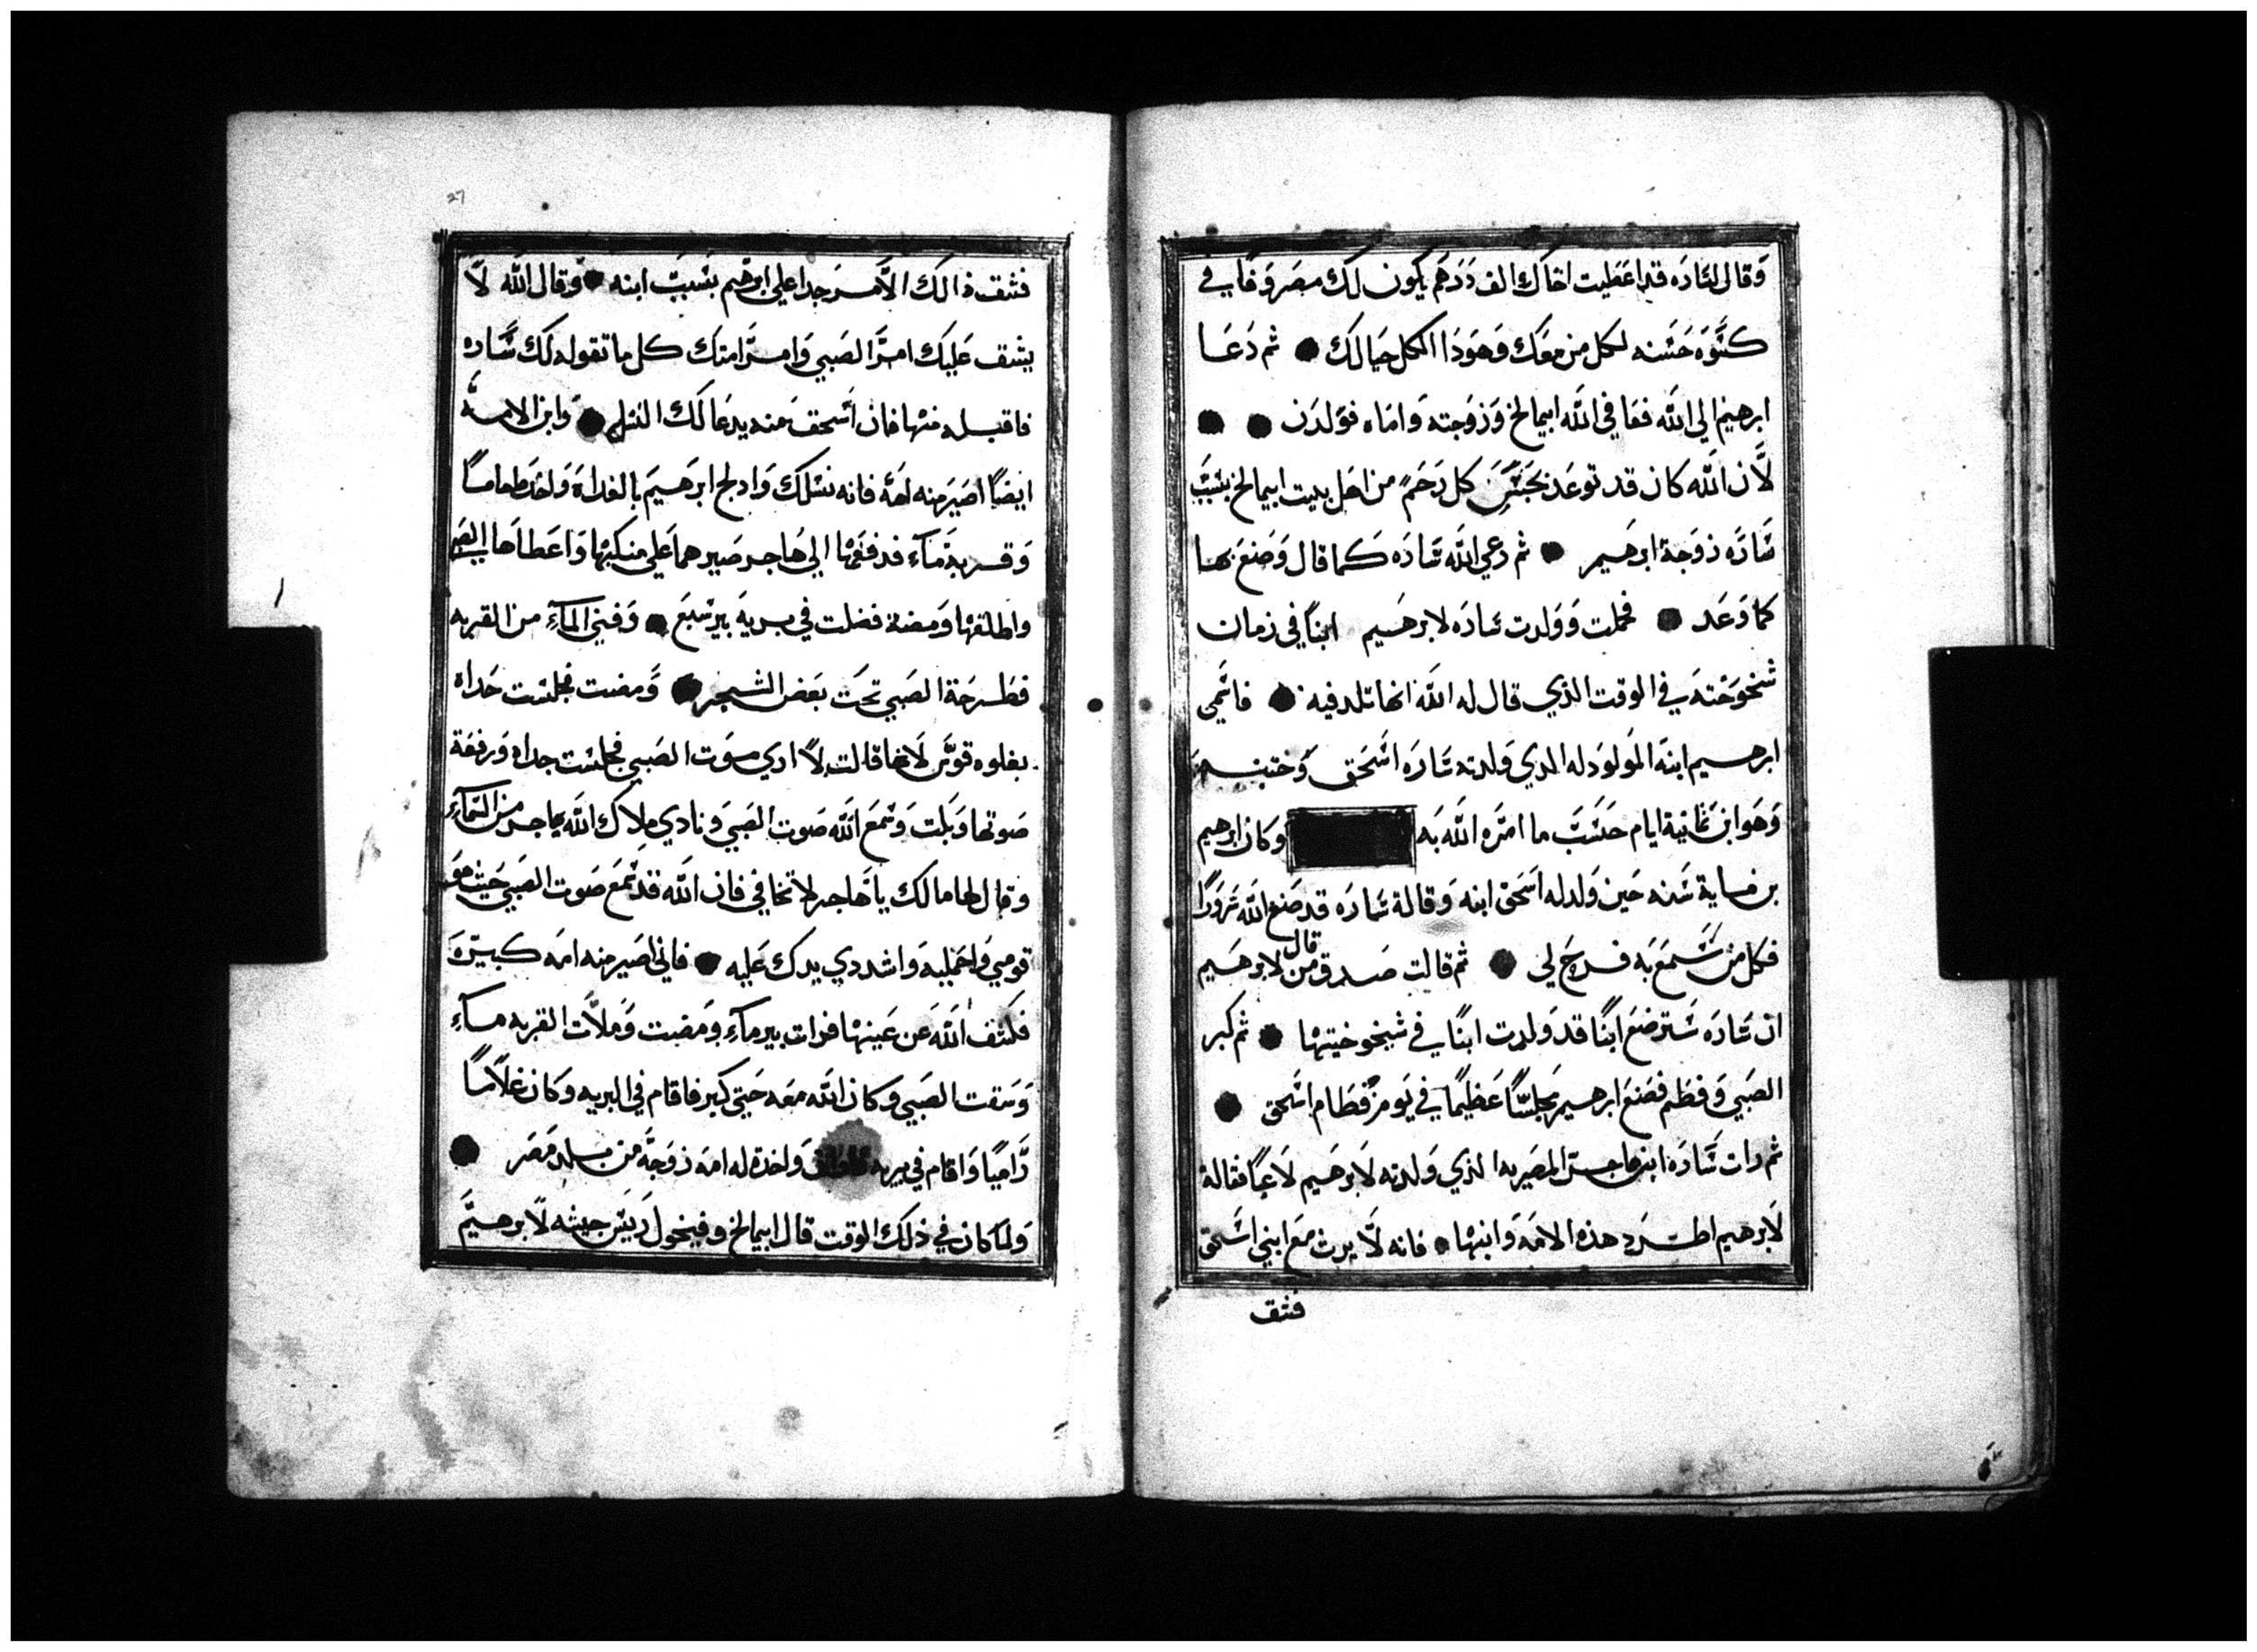 وقال لسارَه قد اعطيت اخاك الف دَدَهَم يكون لك مصر وفا في
كسَّوَه حَسَنه لكل من معَك وَهوَدَا الكل حيالك ● ثم دَعَا
ابرهيم الي الله فعَافي اللَّه ابيمالخ وَزوَجته وَامَاه فوَلدَن ● ●
لاَن اللَّه كان قد توعَد بحَبسَ كل رَحَم من اهَل بيت ابيمالخ بسَبَبَ
سَارَه زوَجة ابرهَيم ● ثم رعي اللَّه سَارَه كما قال وَصَنعَ بها
كما وَعَد ● فحملت وَوَلدت سَارَه لابرهَيم ابنًا في زمان
شخوخته في الوقت الذي قال له اللَّه انها تلد فيه ● فاسمي
ابرهيم ابنه المَولوَد له الدي وَلدته سَارَه اسَحَق وَختنه
وَهوَ ابن ثمانية ايام حسَبَ ما امرَه اللَّه بَه وَكان ابرهيم
بن ماية سَنه حَين وَلد له اسَحق ابنه وَقالة سَارَه قد صَنع اللَّه سَرَورًا
فكل من سَمَعَ به فرحَ لي ● ثم قالت صَدق من قال لابرهَيم
ان سَارَه سَترضعَ ابنًا قد وَلدت ابنًا في شيخوخيتها ● ثم كبر
الصَبي وَفطم فصَنعَ ابرهيم مجلسًا عَظيمًا في يَوم فطام اسَحق ●
ثم رات سَارَه ابن هاجرَ المصَريه الذي وَلدته لاَبرهَيم لاَعبًا فقالة
لاَبرهيم اطرَد هذه الامَة وَابنها ● فانه لاَ يرث معَ ابني اسَحق
فثق
27
فثقف ذالك الاَمرَ جدا علي ابرهَيم بسَببَ ابنه ● وَقال اللَّه لاَ
يثقف عَليك امرَ الصَبي وَامرَ امتك كل ما تقوله لك سَاره
فاقبله منها فان اسَحق منه يدعَا لك النسَل ● وَابن الامه
ايضًا اصَيَر منه امَه فانه نسَلك وَادلج ابرَهيمَ بالغداة وَاخد طعامًا
وَقربة مَآءِ فدفعَها الي هَاجر صَيرهما عَلي منكبها وَاعَطاهَا الصَبي
واطلقها وَمضة فضلت في بريه بير سَبَع ● وَفني المآءِ من القربه
فطرحَة الصَبي تحَت بعَض الشجر ● وَمضت فجلسَت حَداه
بغلوه قوسَ لاَنها قالت لاَ اري موَت الصَبي فجلسَت حداه وَرفعَة
صَوتها وَبكت وَسَمعَ اللَّه صَوت الصَبي وَنادي ملاك اللَّه يهاجر من السَمآءِ
وقال لها مالك يا هَاجر لا تخافي فان اللَّه قد سَمعَ صَوت الصَبي حَيث هوَ
قومي وَاحَمليه وَاشددي يدك عَليه ● فاني اصَير منه امَه كبيَرَة
فكشف اللَّه عَن عَينها فرات بير مآءِ وَمضت وَملاَت القربه مآءِ
وَسَقت الصَبي وكان اللَّه معَه حَتي كبر فاقام في البريه وَكان غلاَمًا
رَاميًا وَاقام في بريه وَاخدة له امَه زوَجةَ من بلد مَصَر ●
وَلما كان في ذلك الوَقت قال ابيمالخ وفيخول رَيسَ جيشه لاَبرهيمَ